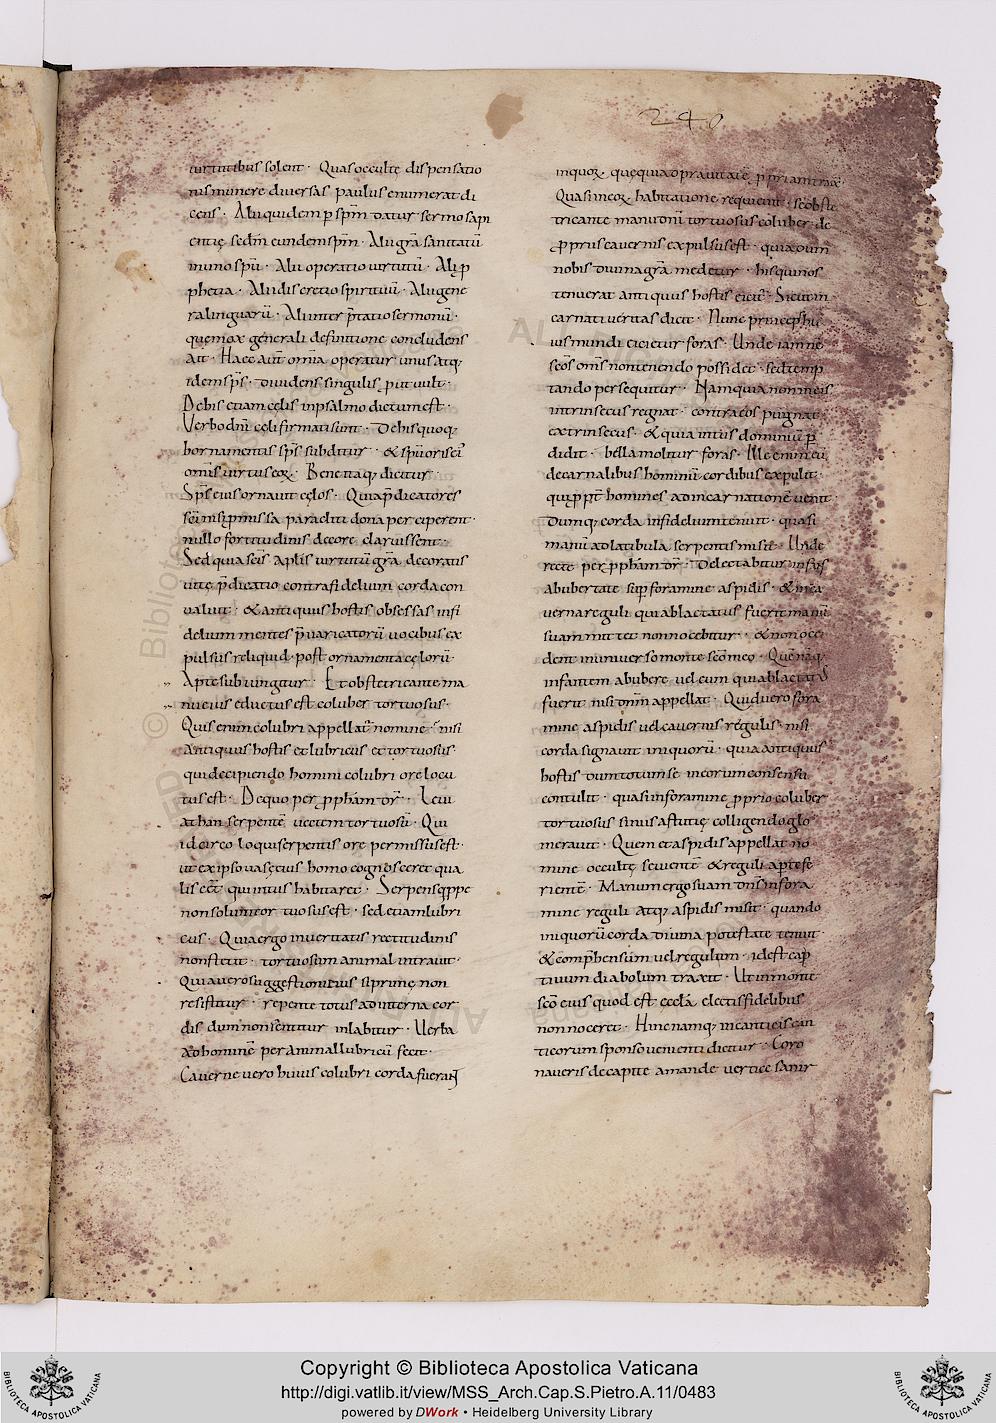 240
uirtutibus solent· Quas occultę dispensatio
nis munere diuersas paulus enumerat di
cens· Alii quidem p̄ sp̄m datur sermo sapi
entię sedm̄ eundem sp̄m· Alii gr̄a sanitatū
in uno sp̄u· Alii operatio uirtutū· Alii p
phetia· Alii discretio spirituū· Alii gene
ra linguarū· Alii inter p̄tatio sermonū·
quem ox generali definitione concludens
ait· Haec aut̄ omīa operatur unus atq;
idem sp̄s· diuidens singulis, put uult·
De his etiam cęlis in psalmo dictum est·
Verbo dnī cęli firmati sunt· De his quoq;
bornamentis sp̄s subditur· & sp̄u oris eī
omīs uirtus eoꝝ· Bene itaq; dicitur
Sp̄s eius ornauit cęlos· Quia p̄dicatores
sc̄i nisi pmissa paracliti dona perciperent·
nullo fortitudinis decore claruissent·
Sed quia sc̄is ap̄lis uirtutū gr̄a decoratis
uitę p̄dicatio contra fidelium corda con
ualuit· & antiquus hostis obsessas infi
delium mentes p̄uaricatorū uocibus ex
pulsus reliquid· post ornamenta cęlorū·
Apte subiungitur· Et obstetricante ma
nu eius eductus est coluber tortuosus·
Quis enim colubri appellat̄ nomine· nisi
antiquus hostis et lubricus et tortuosus·
qui decipiendo homini colubri ore locu
tus est· De quo per pph̄am dr̄· Leui
athan serpentē uectem tortuosū· Qui
idcirco loqui serpentis ore permissus est·
ut ex ipso uase eius homo cognosceret qua
lis eēt qui intus habitaret· Serpens qppe
non solum tor tuosus est· sed etiam lubri
cus· Quia ergo in ueritatis rectitudinis
non stetit· tortuosum animal intrauit·
Quia uero suggestionibus si primę non
resistitur· repente totus ad interna cor
dis dum non sentitur inlabitur· Uerba
ad hominē per animal lubricū fecit·
Cauerne uero huius colubri corda fuerunt
inquoꝝ
Quas in eoꝝ habitatione requieuit· sed obste
tricante manu dnī tortuosus coluber de
ppriis cauernis expulsus est· quia dum
nobis diuina gr̄a medetur· his quī nos
tenuerat antiquus hostis eicit̄· Sicut in
carnati ueritas dicit· Nunc princeps hu
ius mundi eicietur foras· Unde iam nē
sc̄os om̄s non tenendo possidet· sed temp
tando persequitur· Nam quia non in eis
intrinsecus regnat· contra eos pugnat
extrinsecus· & quia intus dominiū p̄
didit· bella molitur foras· Ille enim eū
de carnalibus hominū cordibus expulit·
qui ppt̄ homines ad incarnationē uenit
Dumq; corda infidelium tenuit· quasi
manū ad latibula serpentis misit· Unde
recte per pph̄am dr̄· Delectabitur infans
ab ubertate sup foramine aspidis· & in ca
uerna reguli qui ablactatus fuerit manū
suam mittet non nocebitur· & non occi
dent in uniuerso monte sc̄o meo· Quē naq;
infantem ab ubere uel eum qui ablactat̄
fuerit nisi dnm̄ appellat· Quid uero fora
mine aspidis uel cauernis regulis· nisi
corda signauit iniquorū· quia antiquus
hostis dum totum se in eorum consensū
contulit· quasi in foramine pprio coluber
tortuosus sinus astutię colligendo glo
merauit· Quem et aspidis appellat no
mine occultę seuientē & reguli aperte fe
rientē· Manum ergo suam dn̄s in fora
mine reguli atq; aspidis misit· quando
iniquorū corda diuina potestate tenuit·
& comp̄hensum uel regulum· id est cap
tiuum diabolum traxit· Ut in monte
sc̄o eius quod est eccl̄a electis fidelibus
non noceret· Hinc namq; in canticis can
ticorum sponso uenienti dicitur· Coro
naueris de capite amande uertice sanir
Copyright © Biblioteca Apostolica Vaticana
http://digi.vatlib.it/view/MSS_Arch.Cap.S.Pietro.A.11/0483
powered by DWork • Heidelberg University Library
BIBLIOTECA APOSTOLICA VATICANA
BIBLIOTECA APOSTOLICA VATICANA